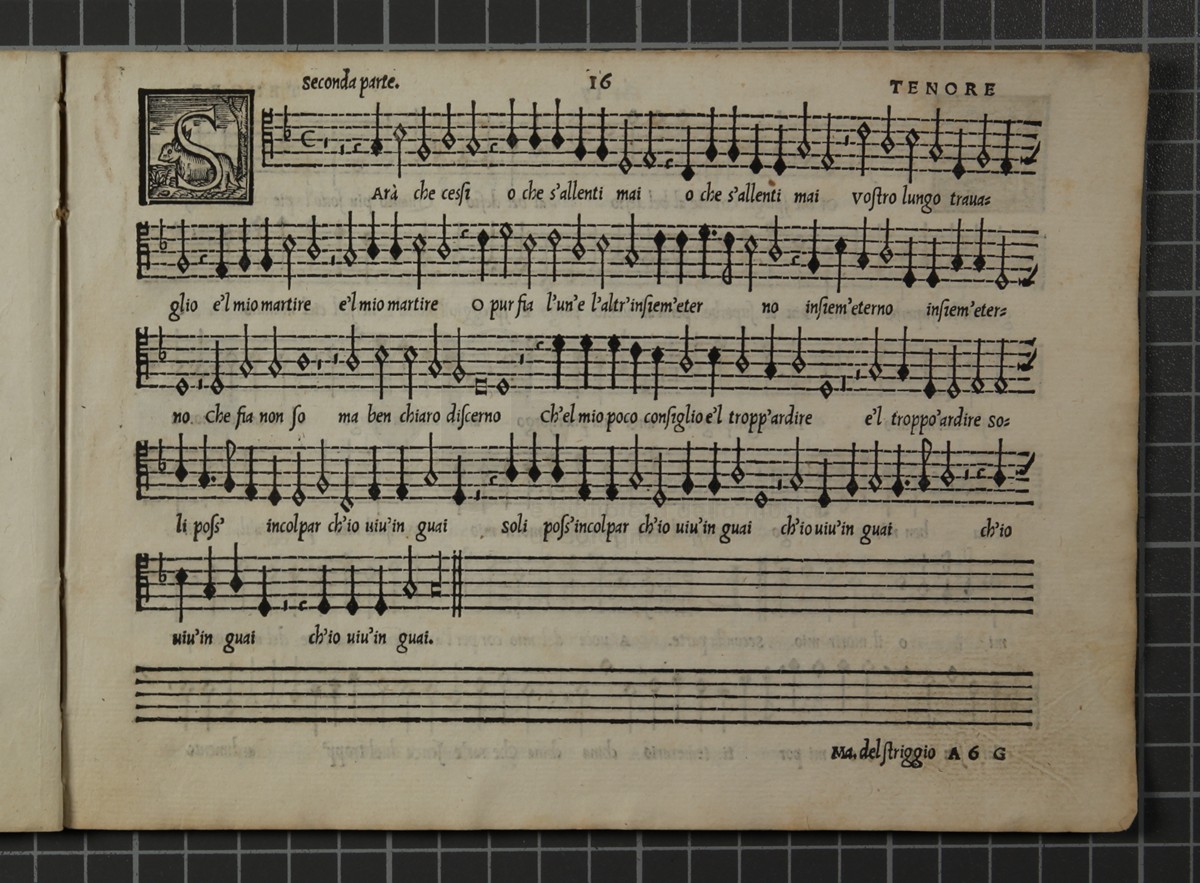 Seconda parte. 16 TENORE
SArà che cessi o che s'allenti mai o che s'allenti mai vostro lungo traua=
glio e'l mio martire e'l mio martire O pur fia l'un'e l'altr'insiem'eter no insiem'eterno insiem'eter=
no Che fia non so ma ben chiaro discerno Ch'el mio poco consiglio e'l tropp'ardire e'l troppo'ardire so=
li poss' incolpar ch'io uiu'in guai soli poss'incolpar ch'io uiu'in guai ch'io uiu'in guai ch'io
uiu'in guai ch'io uiu'in guai.
Ma. del striggio A 6 G